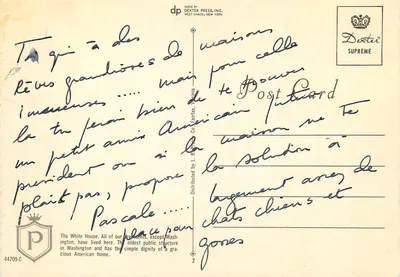 dp
MADE BY
DEXTER PRESS, INC.
WEST NYACK, NEW YORK
Dexter
SUPREME
Post Card
Toi qui a des
Rêves grandioses de maisons
immenses ..... mais pour celle
là tu ferais bien de te trouver
un petit ami Américain futur
président ou si la maison ne te
plaît pas, propose la solution à
Pascale ..... largement assez de
place pour chats chiens et
gosses
The White House. All of our presidents, except Wash-
ington, have lived here. The oldest public structure
in Washington and has the simple dignity of a gra-
cious American home.
P
44709-C
Distributed by L. Co., Fairfax,
2